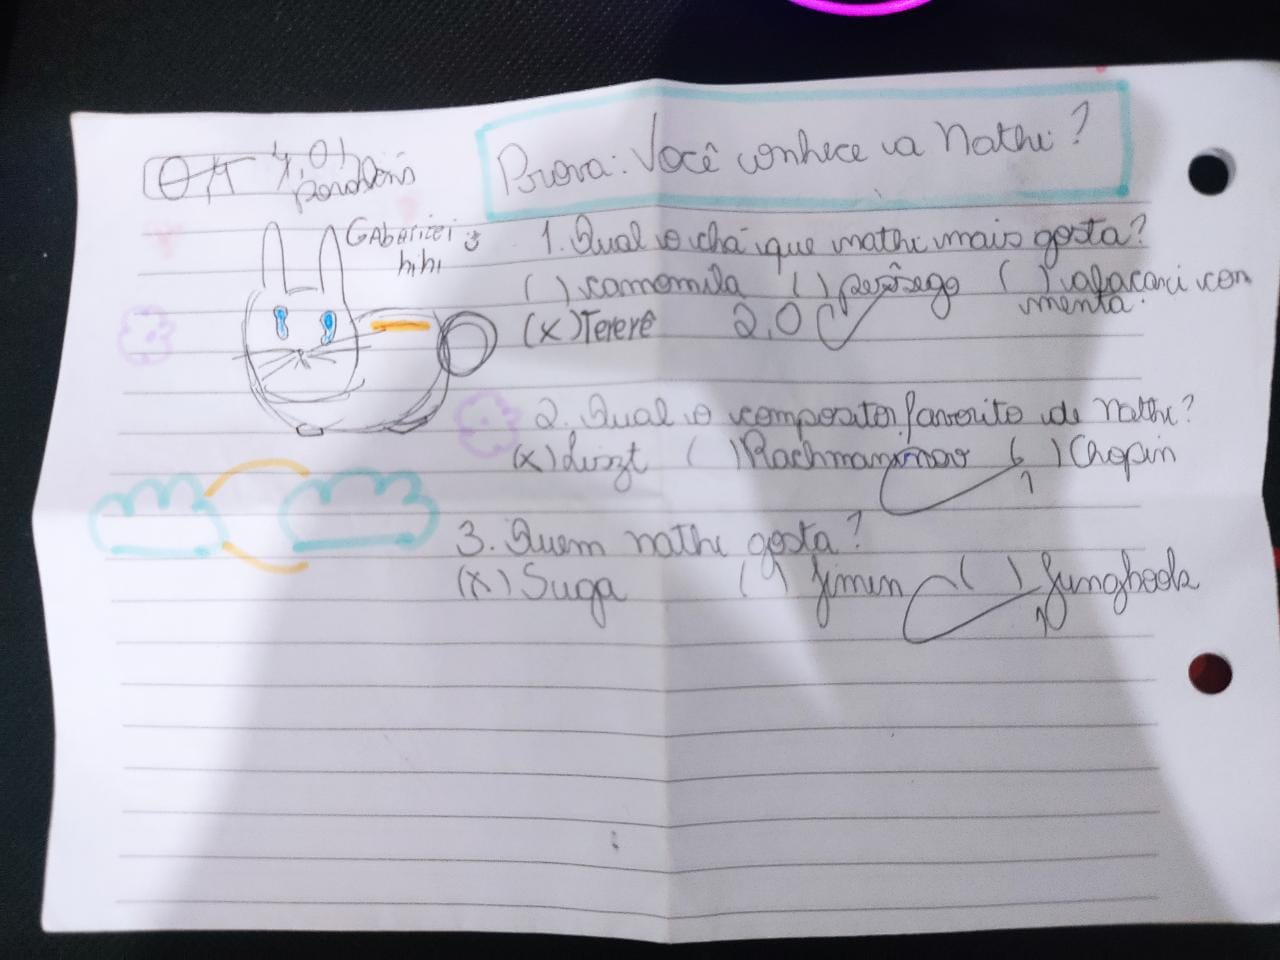 Prova: Você conhece a Nathi?
4,0!
parabéns
Gabaritei :)
hihi
1. Qual o chá que nathi mais gosta?
( ) camomila ( ) pêssego ( ) abacaxi com
menta
(X) Tererê 2,0
2. Qual o compositor favorito de Nathi?
(X) Liszt ( ) Rachmaninov ( ) Chopin
1
3. Quem nathi gosta?
(X) Suga ( ) Jimin ( ) Jungkook
1